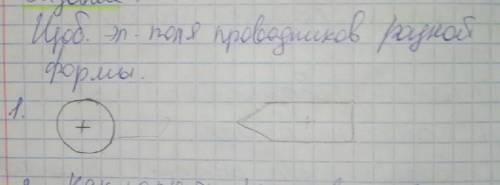 Изоб. эл. поля проводников разной
формы.
1. + +